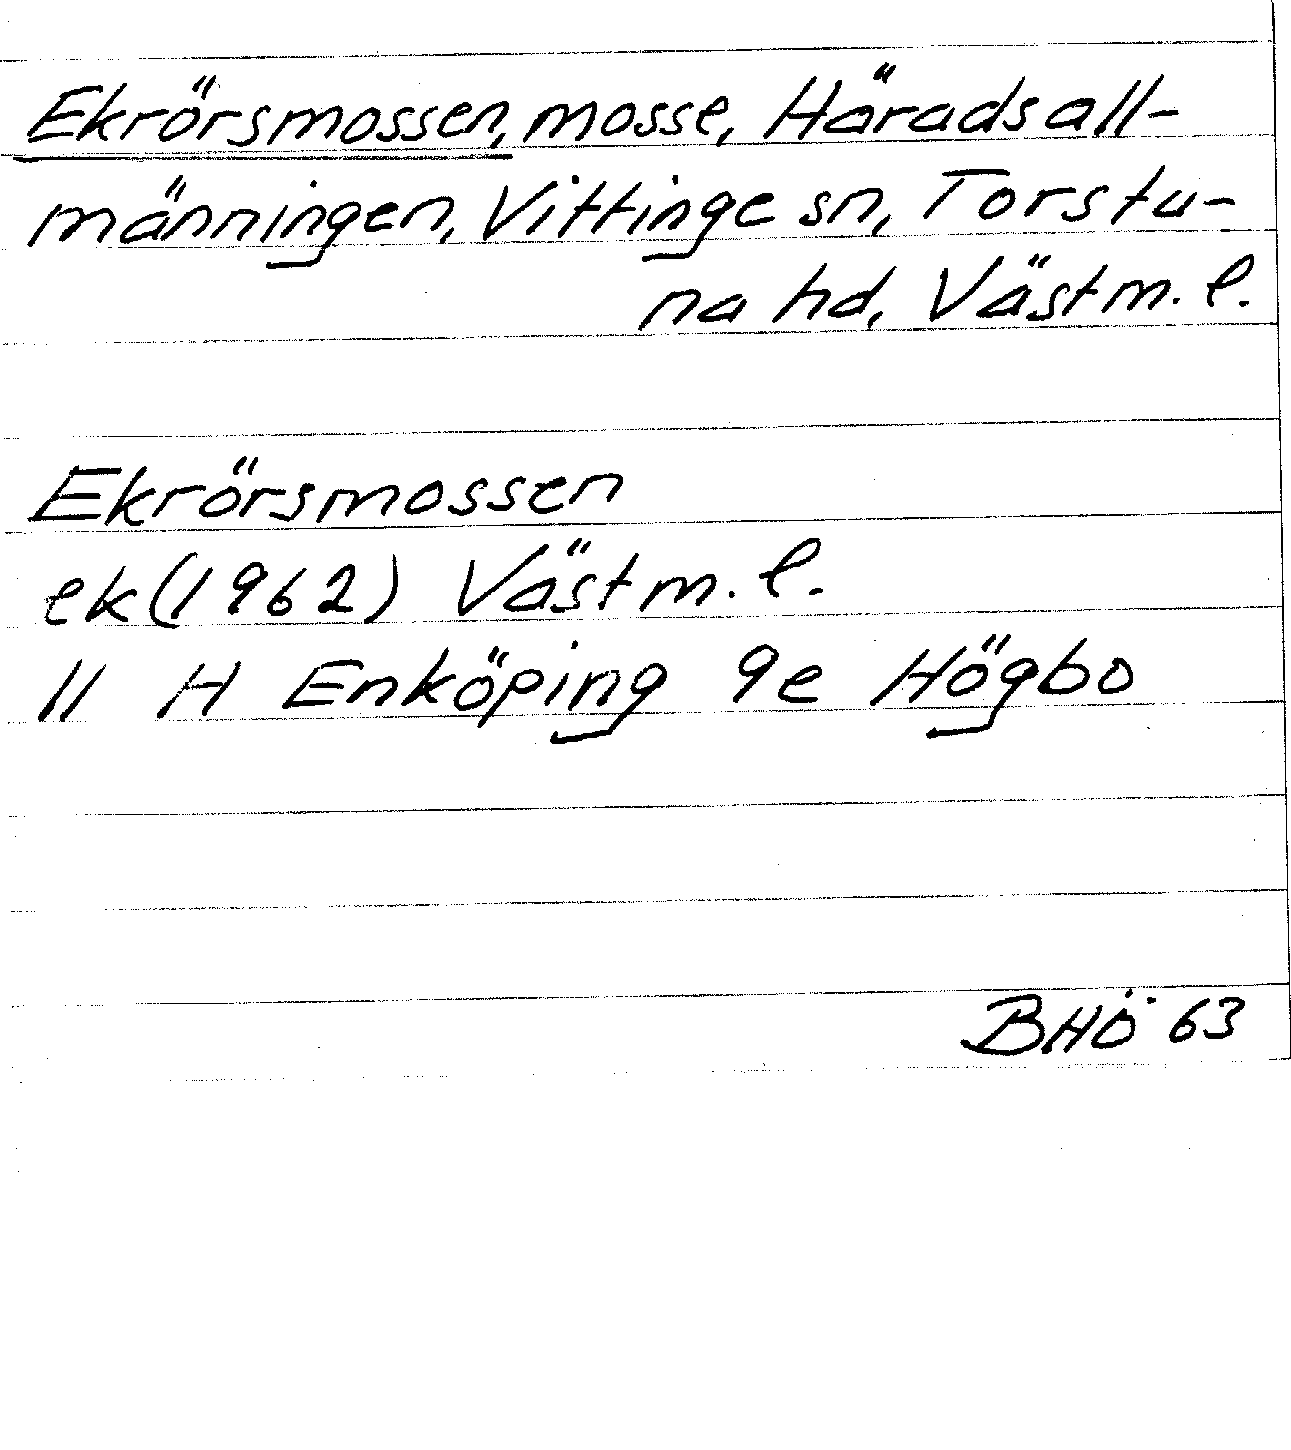 Ekrörsmossen, mosse, Häradsall-
männingen, Vittinge sn, Torstu-
na hd, Västm. l.
Ekrörsmossen
ek (1962) Västm. l.
11 H Enköping 9e Högbo
BHÖ 63